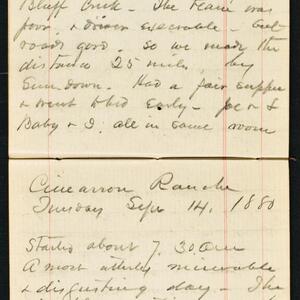 Bluff Creek - The team was
poor, & driver execrable - but
roads good. So we made the
distance 25 miles, by
Sun down. Had a fair supper
& went to bed early - Joe & I
Baby & I. all in same room
Cimarron Ranche
Tuesday Sept 14. 1880
Started about 7.30 am
A most utterly miserable
& disgusting day - The